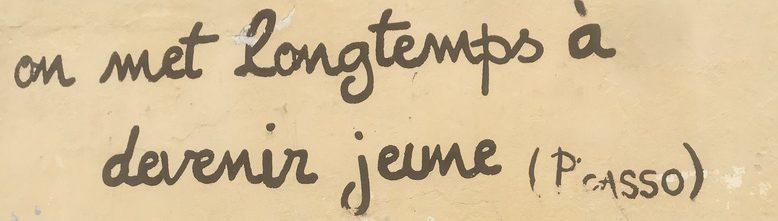 on met longtemps à
devenir jeune (PiCASSO)